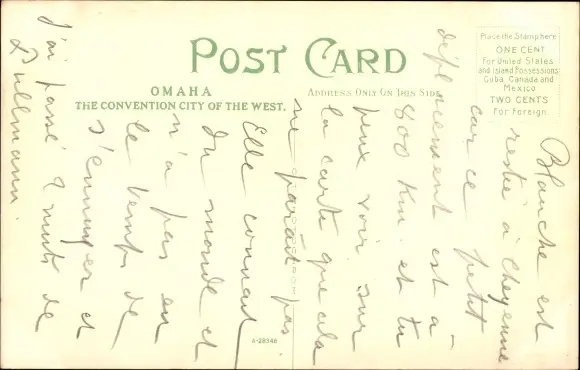 POST CARD
OMAHA
THE CONVENTION CITY OF THE WEST.
ADDRESS ONLY ON THIS SIDE
Place the Stamp here
ONE CENT
For United States
and Island Possessions
Cuba, Canada and
Mexico
TWO CENTS
For Foreign.
Blanche est
restée à Cheyenne
car ce petit
déplacement est à
800 Km. et tu
peux voir sur
la carte que cela
ne paraît pas
Elle connait
du monde et
n'a pas eu
le temps de
s'ennuyer et
J'ai passé 2 nuits de
Pullmann.
A-28348